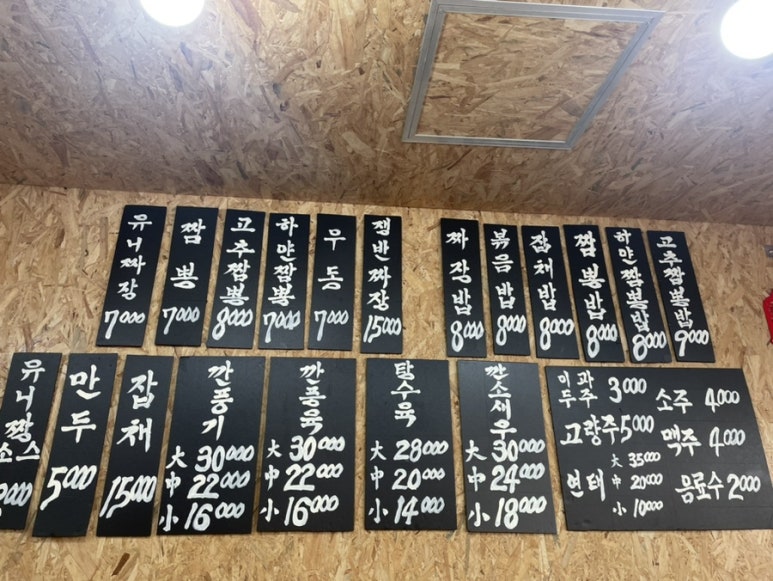 유니짜장 7000
짬뽕 7000
고추짬뽕 8000
하얀짬뽕 7000
우동 7000
쟁반짜장 15000
짜장밥 8000
볶음밥 8000
잡채밥 8000
짬뽕밥 8000
하얀짬뽕밥 8000
고추짬뽕밥 9000
유니짱소스
만두 5000
잡채 15000
깐풍기
大 30000
中 22000
小 16000
깐풍육
大 30000
中 22000
小 16000
탕수육
大 28000
中 20000
小 14000
깐소새우
大 30000
中 24000
小 18000
이과두주 3000
고량주 5000
연태
大 35000
中 20000
小 10000
소주 4000
맥주 4000
음료수 2000